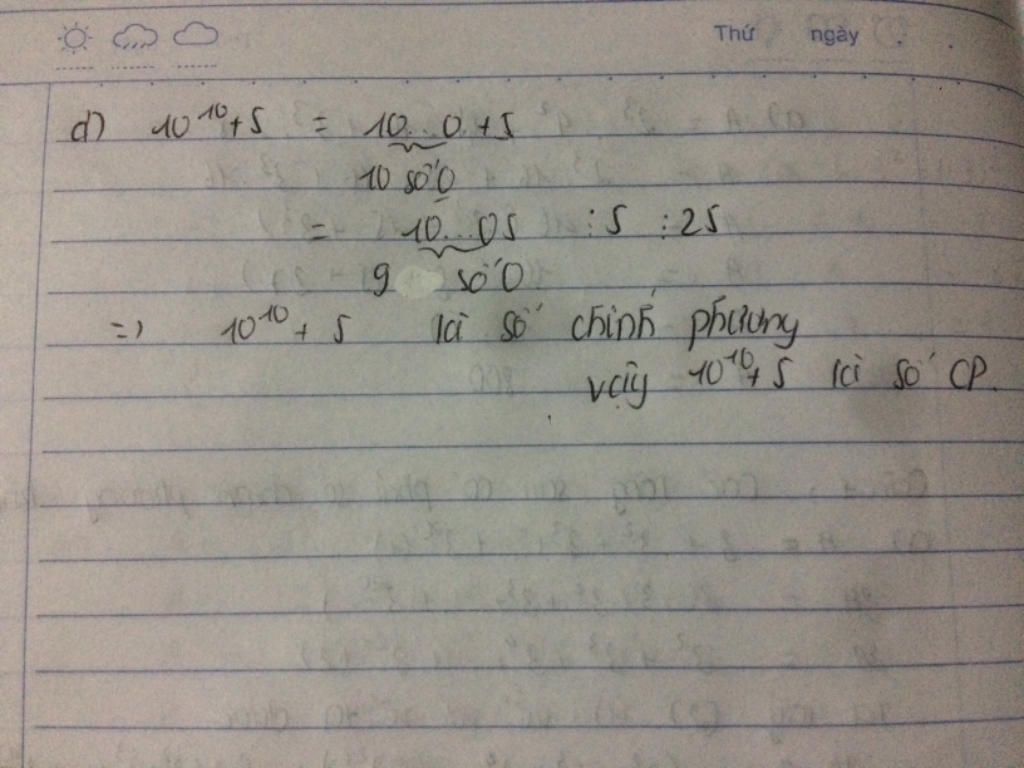 Thứ ngày
d) 10¹⁰ + 5 = 10...0 + 5
10 số 0
= 10...05 ⋮ 5 ⋮ 25
9 số 0
=) 10¹⁰ + 5 là số chính phương
vậy 10¹⁰ + 5 là số CP.